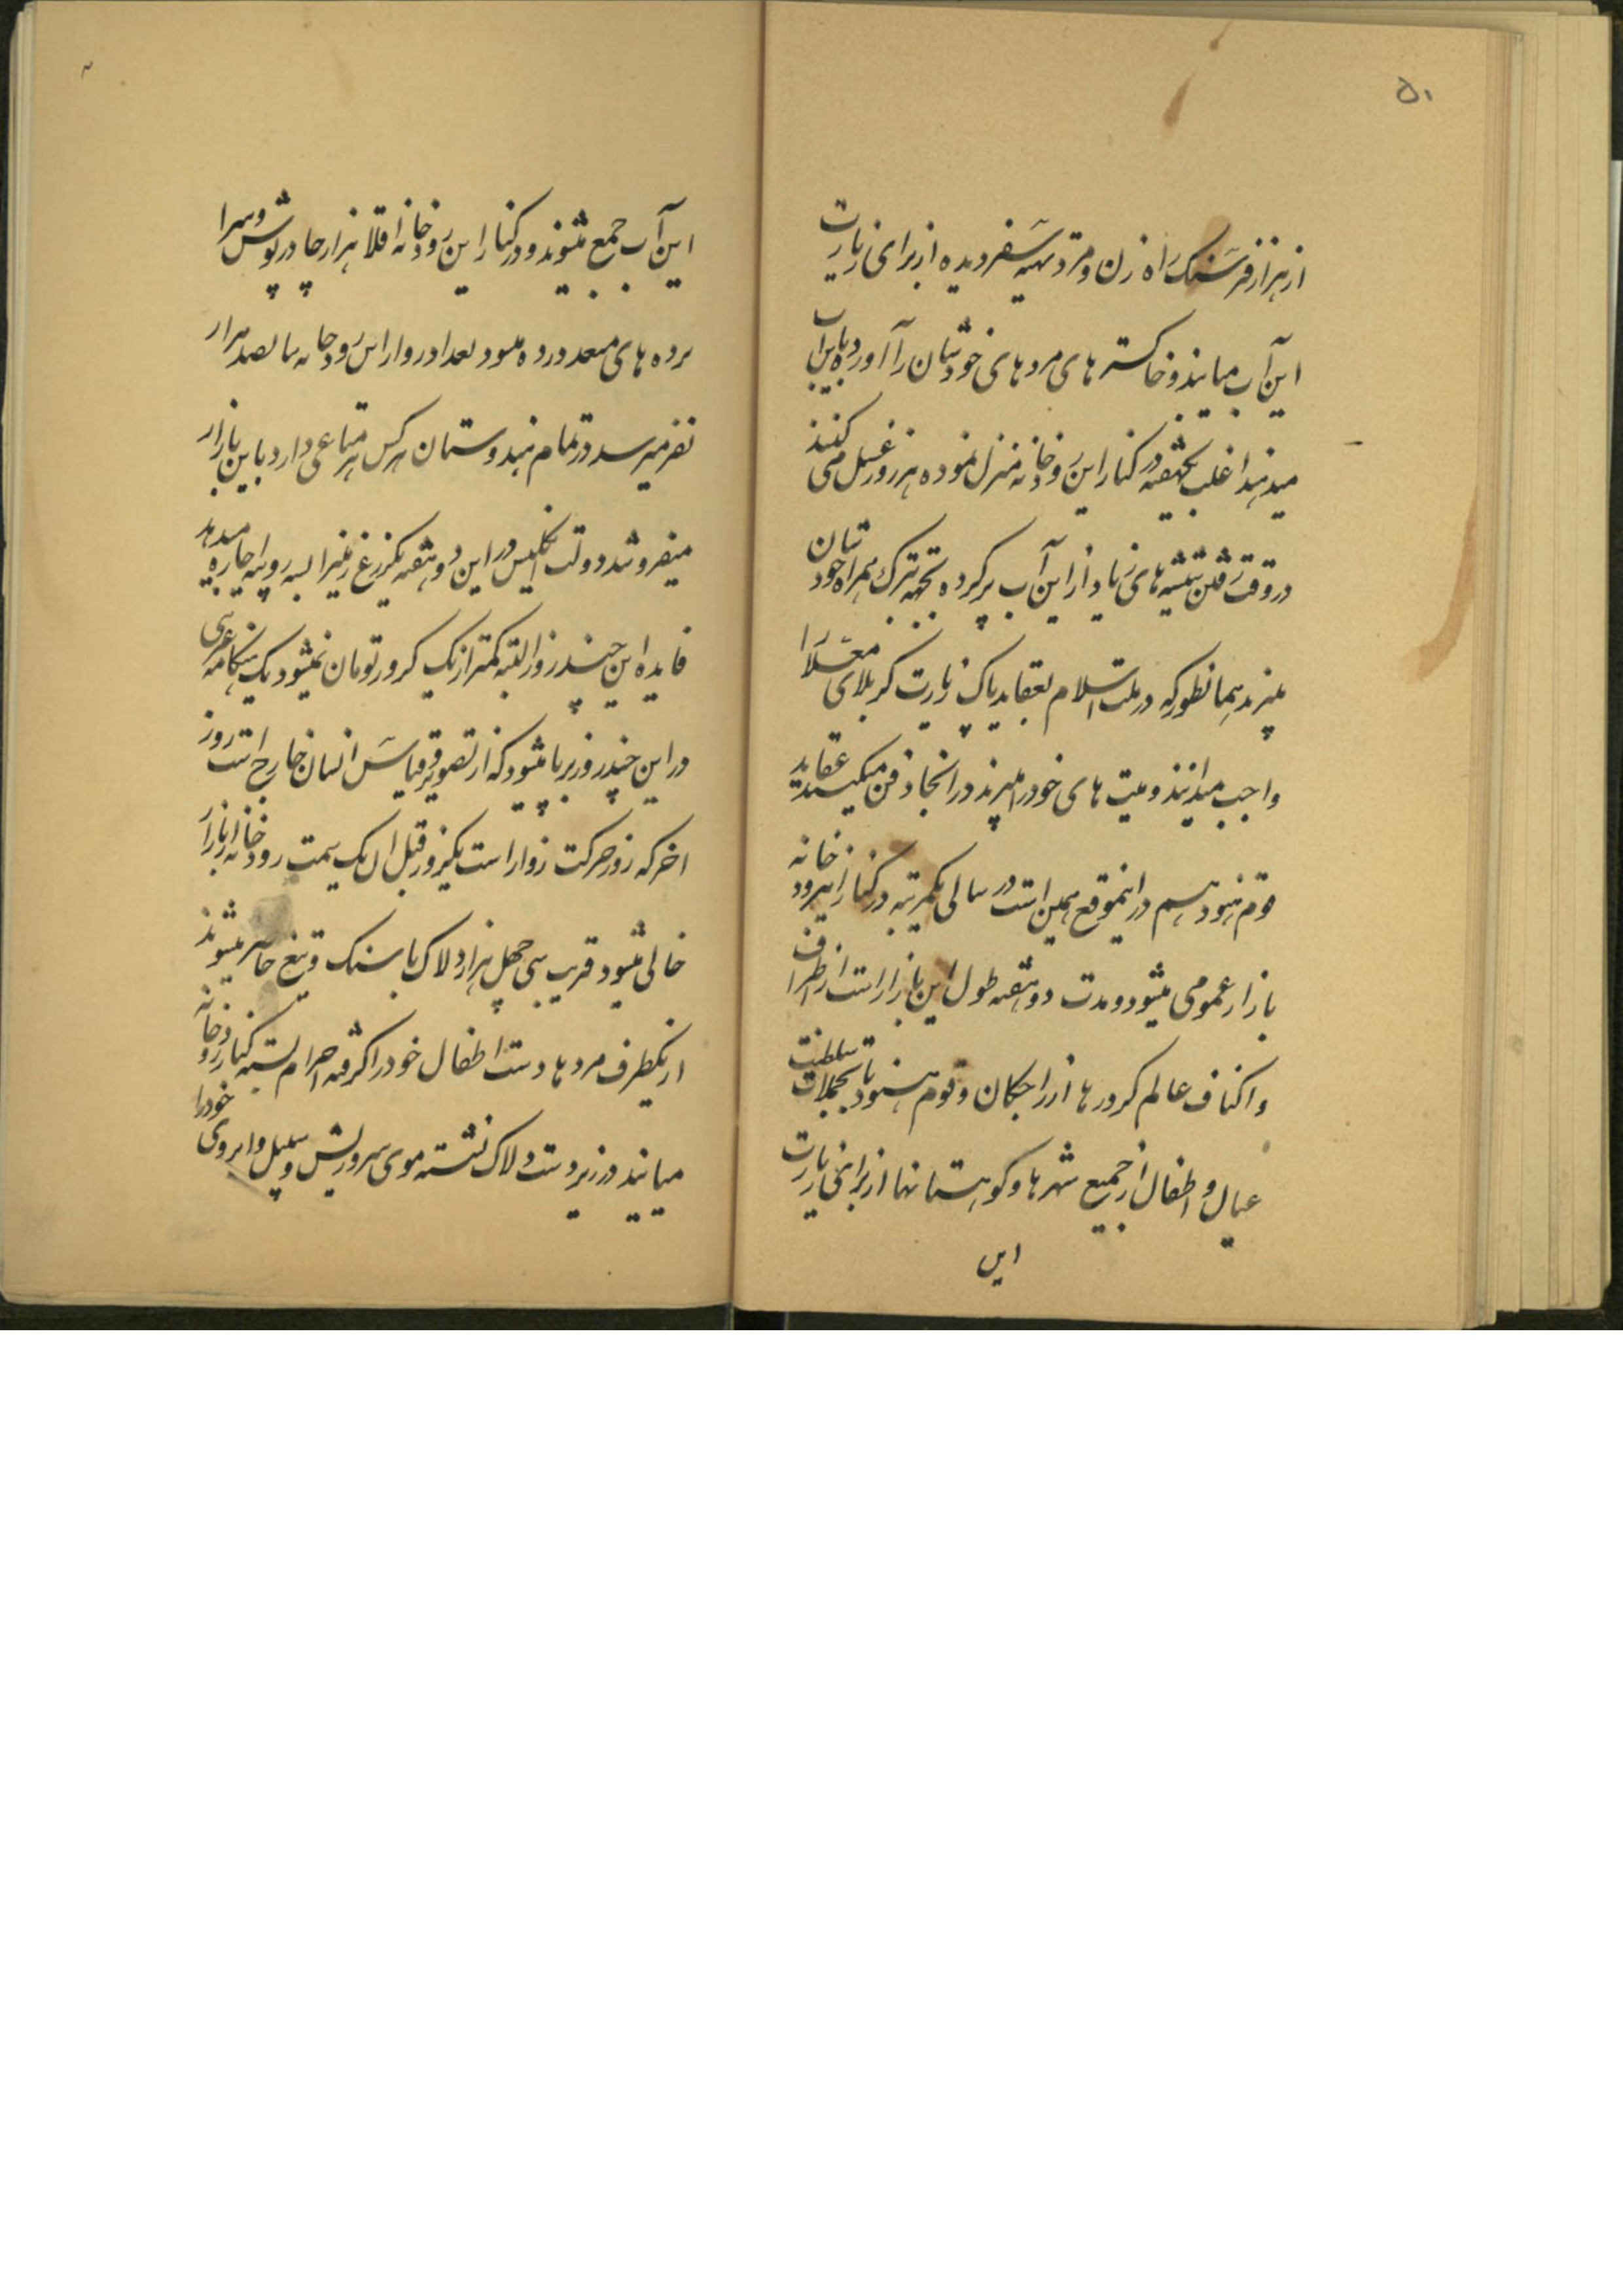 ۵۱
از هزار فرسنک راه زن و مرد تهیه سفر دیده از برای زیارت
این آب میایند و خاکستر های مرده های خودشان را آورده باین آب
میدهند اغلب یکهفته در کنار این رودخانه منزل نموده هر روز غسل می کنند
در وقت رفتن شیشه های زیاد از این آب پر کرده بجهة تبرک همراه خودشان
میبرند همانطور که در ملت اسلام بعقاید پاک زیارت کربلای معلا را
واجب میدانند و میت های خود را میبرند در انجا دفن میکنند عقاید
قوم هنود هم در اینموقع همین است در سالی یکمرتبه در کنار اینرودخانه
بازار عمومی میشود و مدت دو هفته طول این بازار است از اطراف
و اکناف عالم کرورها از راجکان و قوم هنود با تجملات سلطنت
عیال و اطفال از جمیع شهرها و کوهستانها از برای زیارت
این
این آب جمع میشوند و در کنار این رودخانه اقلا هزار چادر پوش و سرا
پرده های متعدد زده میشود تعداد زوار این رودخانه تا پانصد هزار
نفر میرسد در تمام هندوستان هرکس هر متاعی دارد باین بازار
میفروشد دولت انکلیس در این دو هفته یکزرع زمین را بسه روپیه اجاره میدهد
فایده این چند روز البته کمتر از یک کرور تومان نمیشود یک هنکامه غریبی
در این چند روز برپا میشود که از تصویر و قیاس انسان خارج است روز
اخر که روز حرکت زوار است یکروز قبل ان یک سمت رودخانه از بازار
خالی میشود قریب سی چهل هزار دلاک با سنک و تیغ حاضر میشوند
از یکطرف مردها دست اطفال خود را کرفته احرام بسته کنار رودخانه
میایند در زیر دست دلاک نشسته موی سر و ریش و سبیل و ابروی خود را